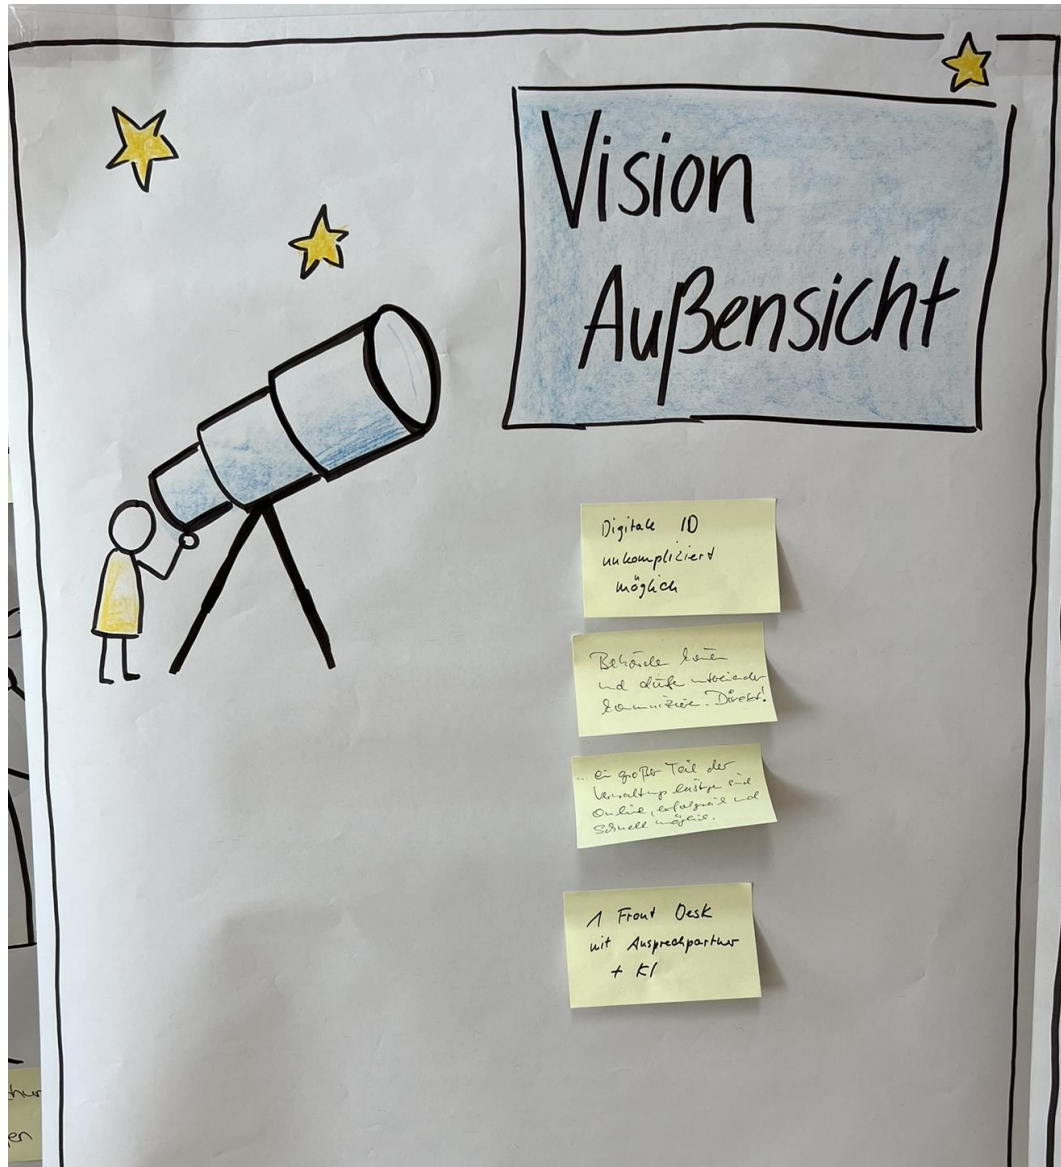 Vision
Außensicht
Digitale ID
unkompliziert
möglich
Behörden können
und dürfen miteinander
kommunizieren. Direkt!
.. ein großer Teil der
Verwaltungsleistungen sind
Online, erfolgreich und
Schnell möglich.
1 Front Desk
mit Ansprechpartner
+ KI
en